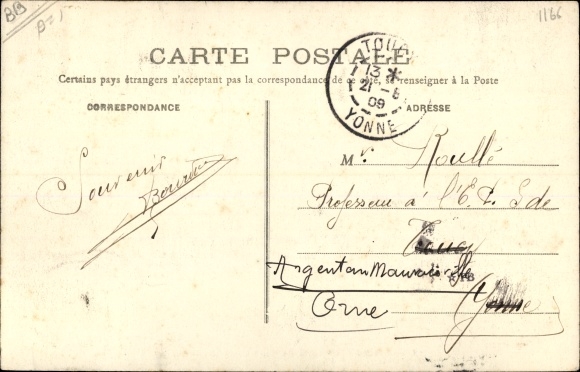 BB
1166
CARTE POSTALE
Certains pays étrangers n'acceptant pas la correspondance de ce côté, se renseigner à la Poste
CORRESPONDANCE
ADRESSE
13 *
21 - 8
09
YONNE
Souvenir
Mr. Roullé
Professeur à l'E. P. S de
Toucy
Argentan
Orne
Yonne